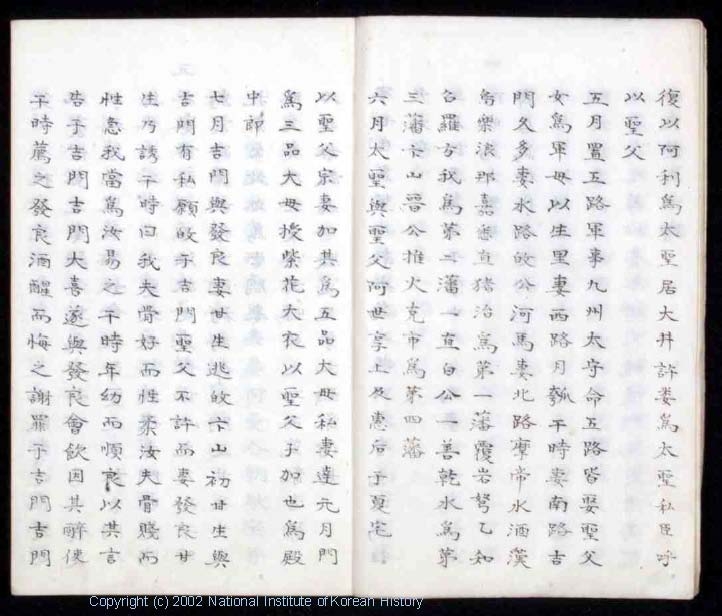 復以阿利為太聖居大井許婁為太聖私臣呼
以聖父
五月置五路軍事九州太守命五路皆娶聖父
女為軍母以生里妻西路月瓠干時妻南路吉
門久多妻水路的公河馬妻北路摩帝水酒漢
烏樂浪那嘉悉直猪治為第一藩覆岩弩乙知
召羅方我為第二藩一直白公一善乾水為第
三藩卞山晋公推火克市為第四藩
六月太聖與聖父阿世享上及惠后于夏宅
以聖父宗妻加其為五品大母私妻達元月門
為三品大母授紫花大衣以聖父子加也為殿
中郎
七月吉門與發良妻甘生逃的卞山初甘生與
吉門有私願的于吉門聖父不許而妻發良甘
生乃誘干時曰我夫骨好而性柔汝夫骨賤而
性急我當為汝易之干時年幼而順良以其言
告于吉門吉門大喜遂與發良會飲因其醉使
干時薦之發良酒醒而悔之謝罪于吉門吉門
Copyright (c) 2002 National Institute of Korean History